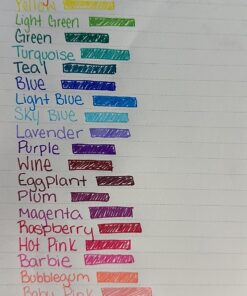 Yellow
Light Green
Green
Turquoise
Teal
Blue
Light Blue
Sky Blue
Lavender
Purple
Wine
Eggplant
Plum
Magenta
Raspberry
Hot Pink
Barbie
Bubblegum
Baby Pink